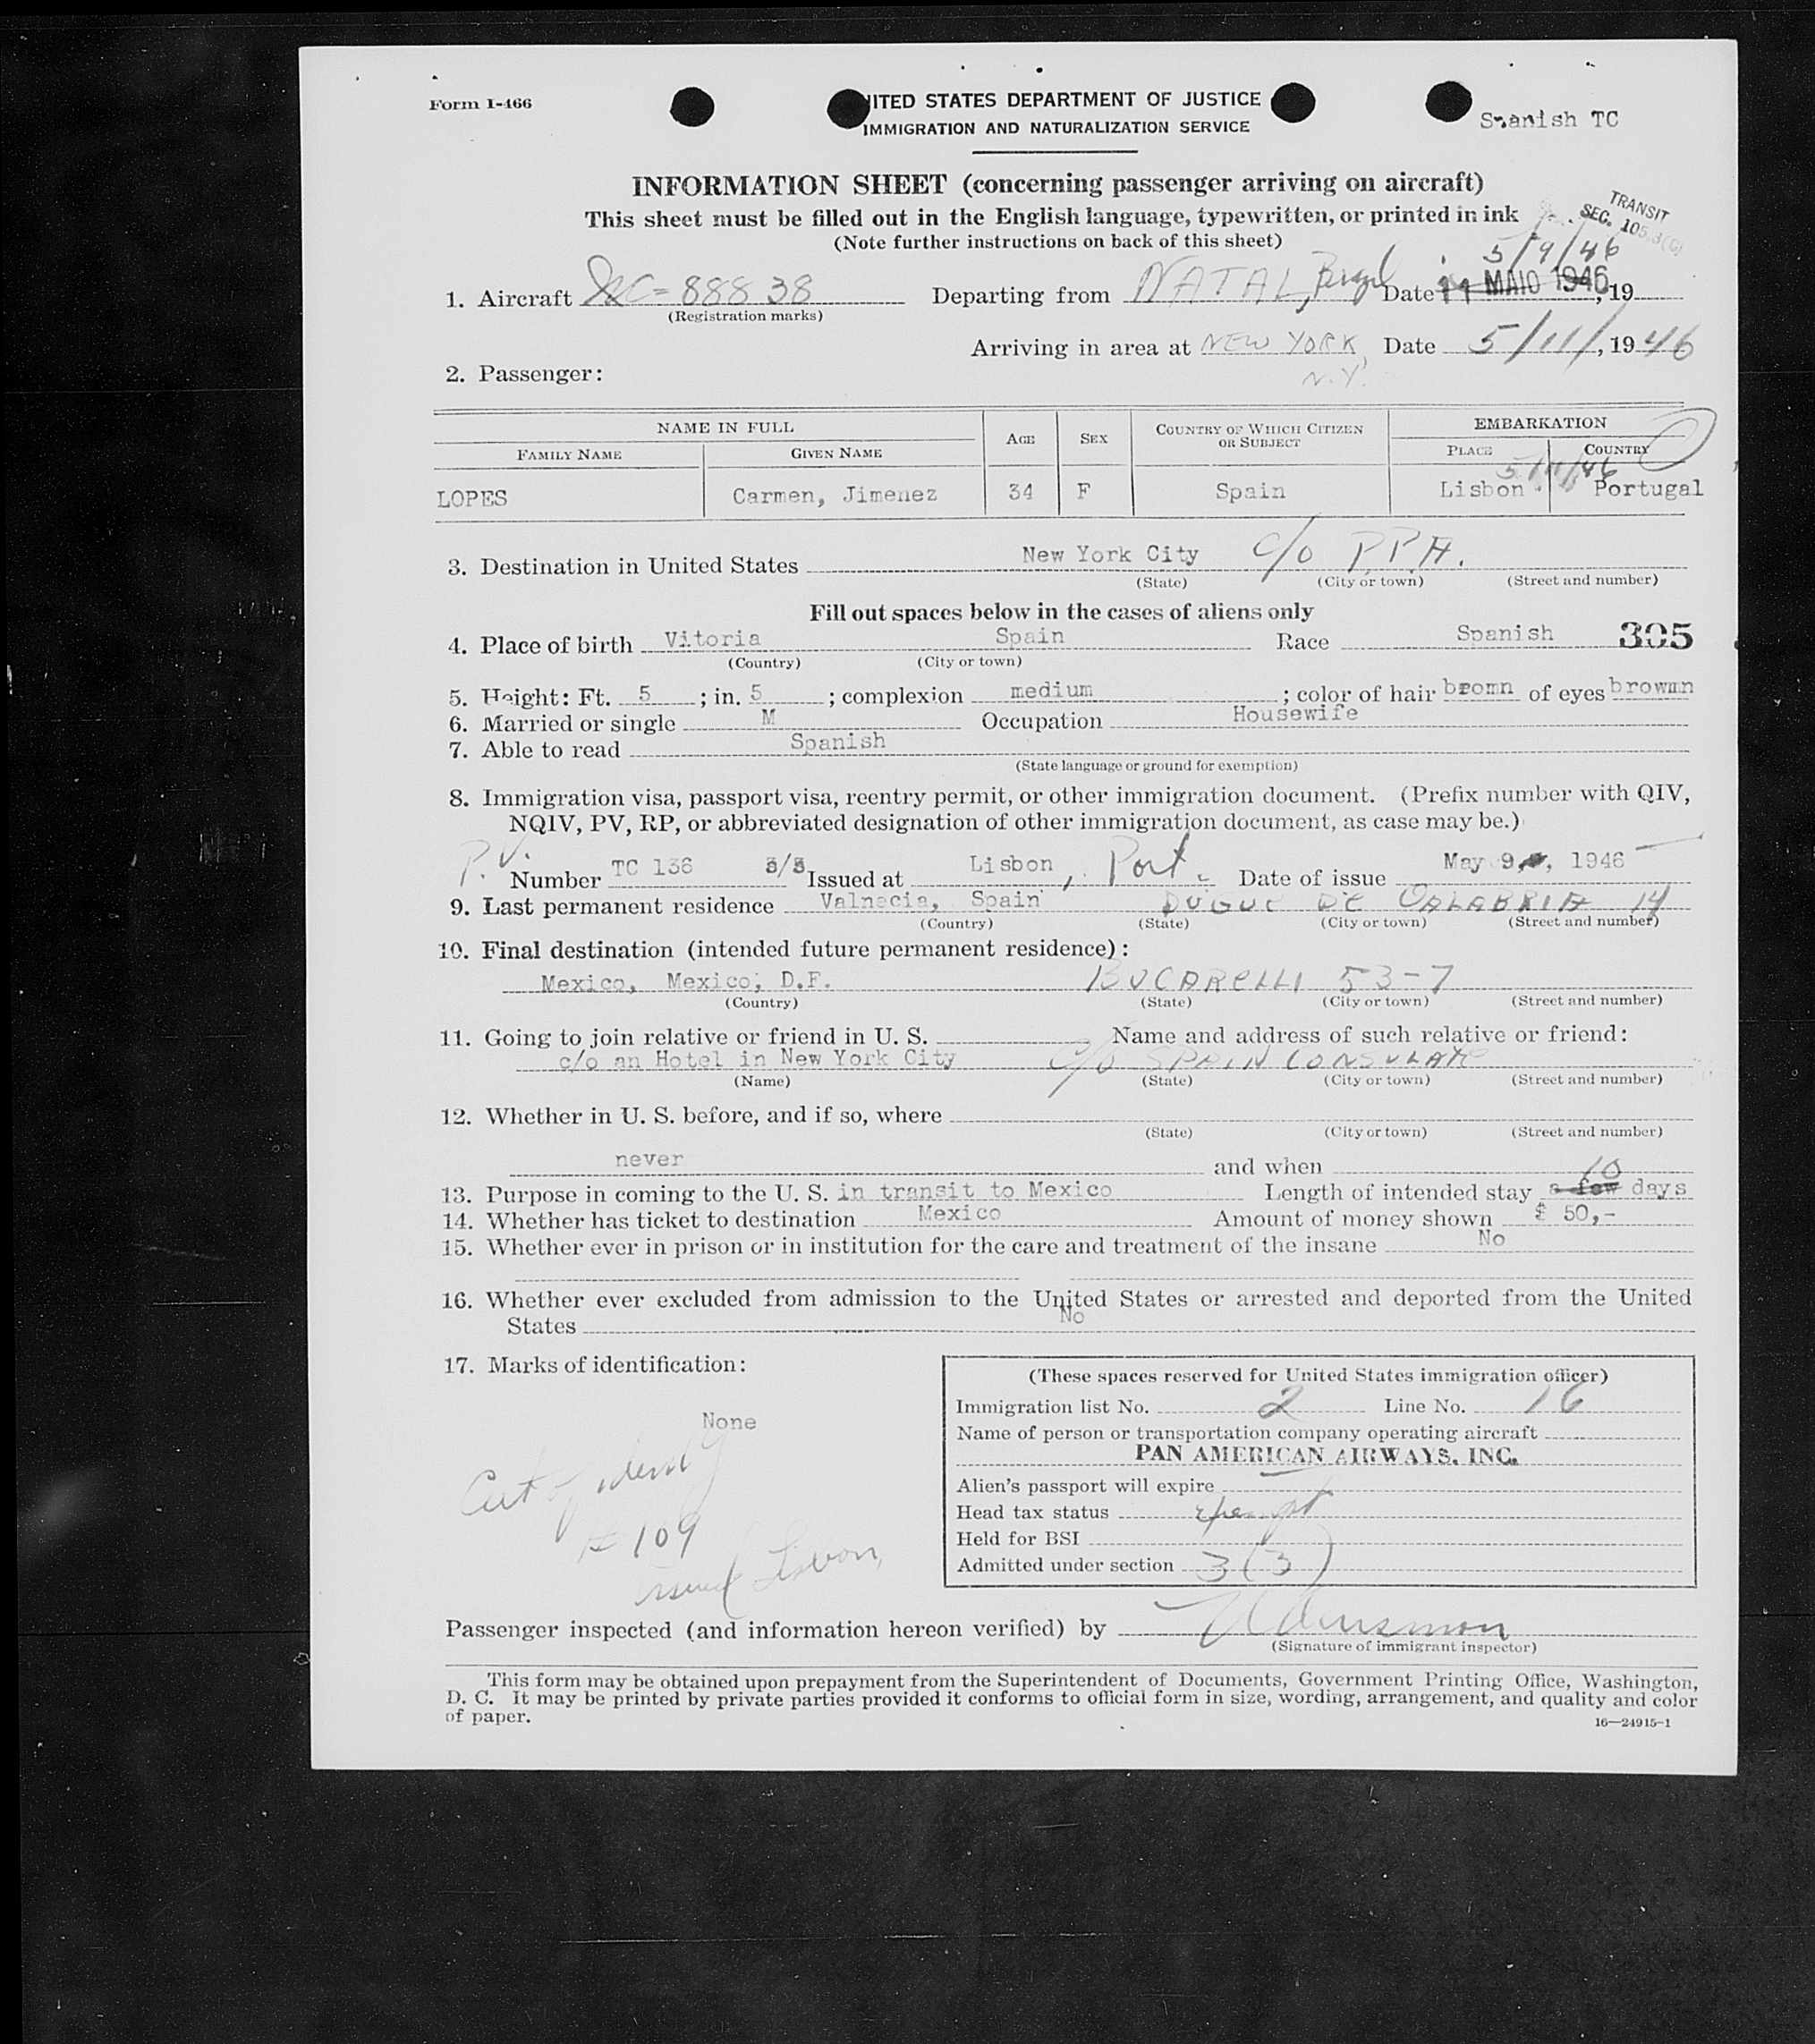 Form I-466
UNITED STATES DEPARTMENT OF JUSTICE
IMMIGRATION AND NATURALIZATION SERVICE
Spanish TC
INFORMATION SHEET (concerning passenger arriving on aircraft)
This sheet must be filled out in the English language, typewritten, or printed in ink
(Note further instructions on back of this sheet)
TRANSIT
SEC. 105.3(G)
5/9/46
1. Aircraft NC-88838 Departing from NATAL, Brazil Date 11 MAIO 1946, 19
(Registration marks)
Arriving in area at NEW YORK, Date 5/11/, 1946
N.Y.
2. Passenger:
NAME IN FULL AGE SEX COUNTRY OF WHICH CITIZEN OR SUBJECT EMBARKATION
FAMILY NAME GIVEN NAME PLACE COUNTRY
5/11/46
LOPES Carmen, Jimenez 34 F Spain Lisbon Portugal
3. Destination in United States New York City c/o P.P.A.
(State) (City or town) (Street and number)
Fill out spaces below in the cases of aliens only
4. Place of birth Vitoria Spain Race Spanish 305
(Country) (City or town)
5. Height: Ft. 5 ; in. 5 ; complexion medium ; color of hair bromn of eyes browmn
6. Married or single M Occupation Housewife
7. Able to read Spanish
(State language or ground for exemption)
8. Immigration visa, passport visa, reentry permit, or other immigration document. (Prefix number with QIV,
NQIV, PV, RP, or abbreviated designation of other immigration document, as case may be.)
P.V. Number TC 136 3/3 Issued at Lisbon, Port. Date of issue May 9, 1946
9. Last permanent residence Valnecia, Spain DUQUE DE CALABRIA 14
(Country) (State) (City or town) (Street and number)
10. Final destination (intended future permanent residence):
Mexico, Mexico, D.F. BUCARELLI 53-7
(Country) (State) (City or town) (Street and number)
11. Going to join relative or friend in U. S. Name and address of such relative or friend:
c/o an Hotel in New York City c/o SPAIN CONSULATE
(Name) (State) (City or town) (Street and number)
12. Whether in U. S. before, and if so, where
(State) (City or town) (Street and number)
never and when
10
13. Purpose in coming to the U. S. in transit to Mexico Length of intended stay a few days
14. Whether has ticket to destination Mexico Amount of money shown $ 50,-
15. Whether ever in prison or in institution for the care and treatment of the insane No
16. Whether ever excluded from admission to the United States or arrested and deported from the United
States No
17. Marks of identification:
None
Cert of identity
# 109
issued Lisbon,
(These spaces reserved for United States immigration officer)
Immigration list No. 2 Line No. 16
Name of person or transportation company operating aircraft
PAN AMERICAN AIRWAYS, INC.
Alien's passport will expire
Head tax status exempt
Held for BSI
Admitted under section 3(3)
Passenger inspected (and information hereon verified) by
(Signature of immigrant inspector)
This form may be obtained upon prepayment from the Superintendent of Documents, Government Printing Office, Washington,
D. C. It may be printed by private parties provided it conforms to official form in size, wording, arrangement, and quality and color
of paper.
16—24915-1